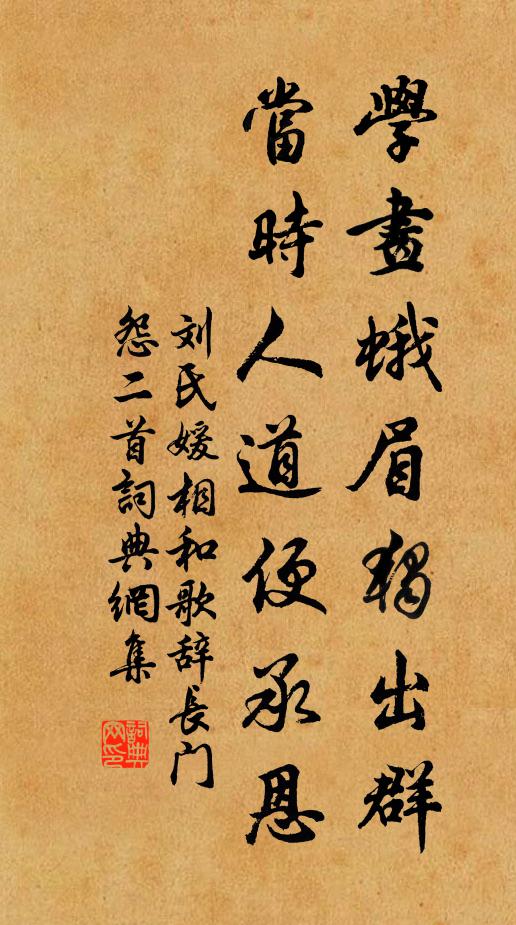 學畫蛾眉獨出群
當時人道便承恩
刘氏媛相和歌辞長门
怨二首詞典網集
詞典
网印